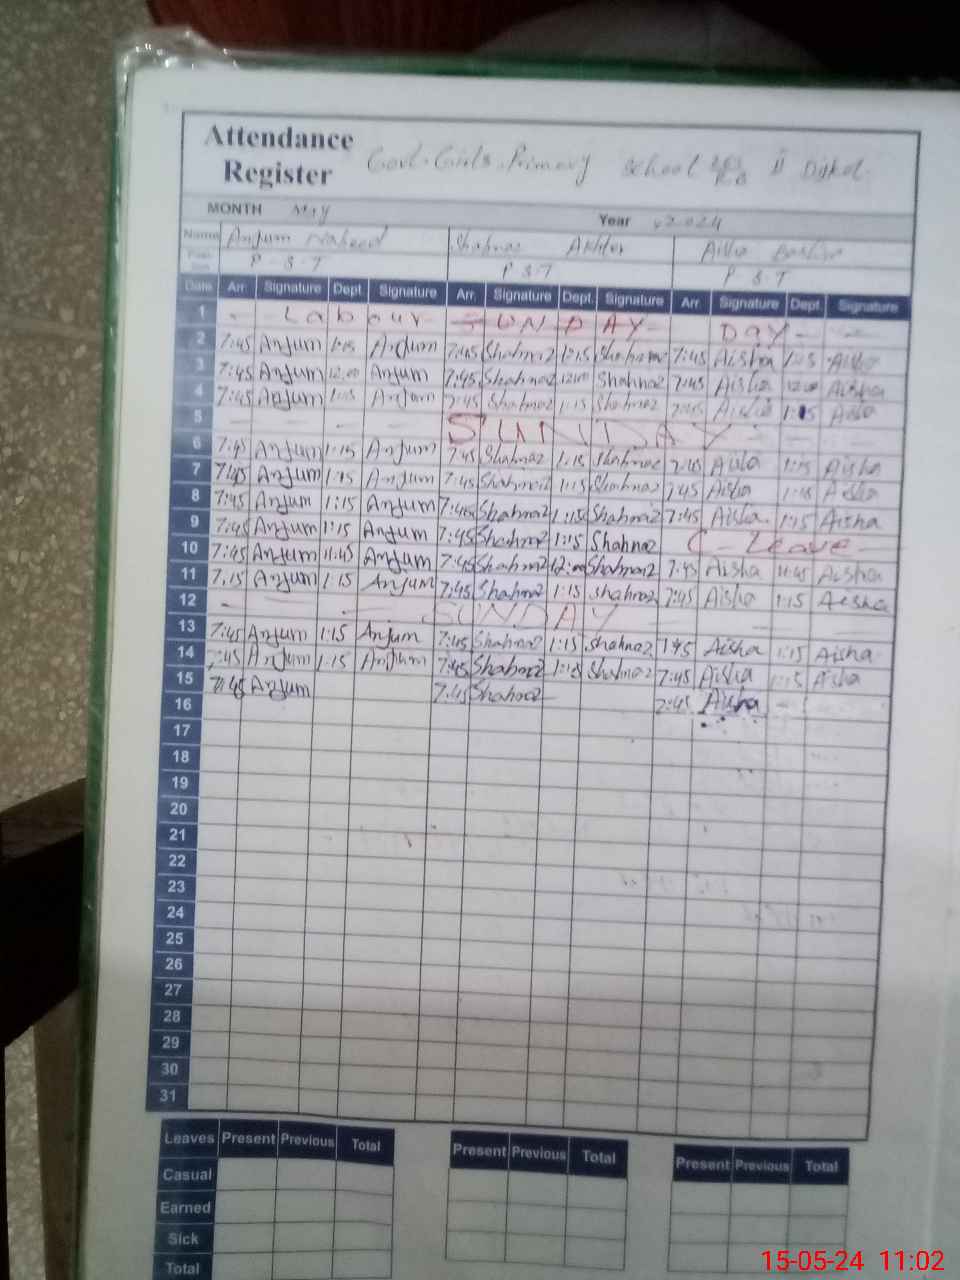 Attendance Register Govt. Girls. Primary School II Dijkot.
MONTH May Year 2024
Name Anjum Naheed Shahnaz Akhter Aisha Bashir
P S T P S T P S T
Date Arr. Signature Dept. Signature Arr. Signature Dept. Signature Arr. Signature Dept. Signature
1 - Labour SUNDAY Day -
2 7:45 Anjum 1:15 Anjum 7:45 Shahnaz 1:15 Shahnaz 7:45 Aisha 1:15 Aisha
3 7:45 Anjum 12:00 Anjum 7:45 Shahnaz 12:00 Shahnaz 7:45 Aisha 12:00 Aisha
4 7:45 Anjum 1:15 Anjum 7:45 Shahnaz 1:15 Shahnaz 7:45 Aisha 1:15 Aisha
5 SUNDAY
6 7:45 Anjum 1:15 Anjum 7:45 Shahnaz 1:15 Shahnaz 7:45 Aisha 1:15 Aisha
7 7:45 Anjum 1:15 Anjum 7:45 Shahnaz 1:15 Shahnaz 7:45 Aisha 1:15 Aisha
8 7:45 Anjum 1:15 Anjum 7:45 Shahnaz 1:15 Shahnaz 7:45 Aisha 1:15 Aisha
9 7:45 Anjum 1:15 Anjum 7:45 Shahnaz 1:15 Shahnaz C - Leave -
10 7:45 Anjum 11:45 Anjum 7:45 Shahnaz 12:00 Shahnaz 7:45 Aisha 11:45 Aisha
11 7:15 Anjum 1:15 Anjum 7:45 Shahnaz 1:15 Shahnaz 7:45 Aisha 1:15 Aisha
12 - SUNDAY
13 7:45 Anjum 1:15 Anjum 7:45 Shahnaz 1:15 Shahnaz 7:45 Aisha 1:15 Aisha
14 7:45 Anjum 1:15 Anjum 7:45 Shahnaz 1:15 Shahnaz 7:45 Aisha 1:15 Aisha
15 7:45 Anjum 7:45 Shahnaz 7:45 Aisha
16
17
18
19
20
21
22
23
24
25
26
27
28
29
30
31
Leaves Present Previous Total Present Previous Total Present Previous Total
Casual
Earned
Sick
Total
15-05-24 11:02